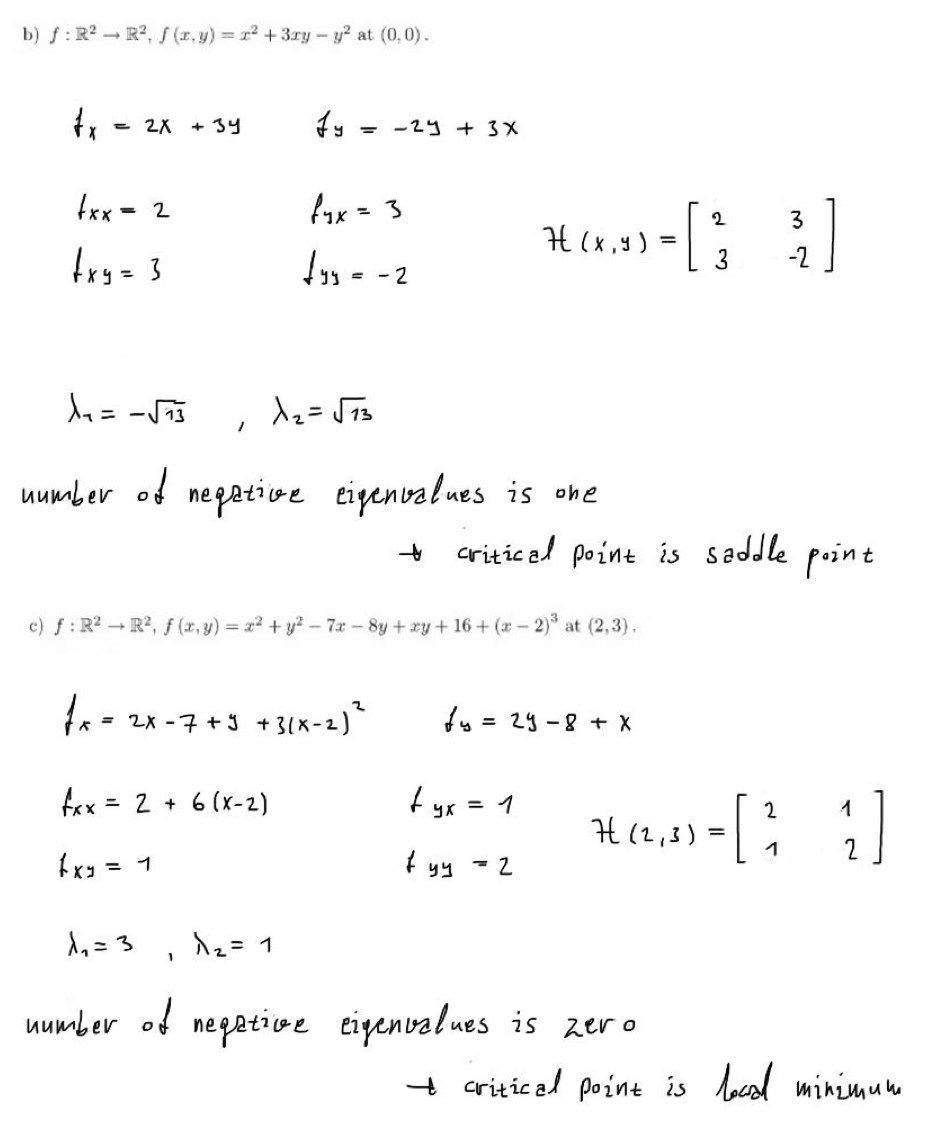 b) f : ℝ² → ℝ², f (x, y) = x² + 3xy − y² at (0, 0) .
fx = 2x + 3y    fy = -2y + 3x
fxx = 2    fyx = 3
H (x,y) = [ 2 3 ; 3 -2 ]
fxy = 3    fyy = -2
λ1 = -√13 , λ2 = √13
number of negative eigenvalues is one
→ critical point is saddle point
c) f : ℝ² → ℝ², f (x, y) = x² + y² − 7x − 8y + xy + 16 + (x − 2)³ at (2, 3) .
fx = 2x - 7 + y + 3(x-2)²    fy = 2y - 8 + x
fxx = 2 + 6(x-2)    fyx = 1
H (2,3) = [ 2 1 ; 1 2 ]
fxy = 1    fyy = 2
λ1 = 3 , λ2 = 1
number of negative eigenvalues is zero
→ critical point is local minimum